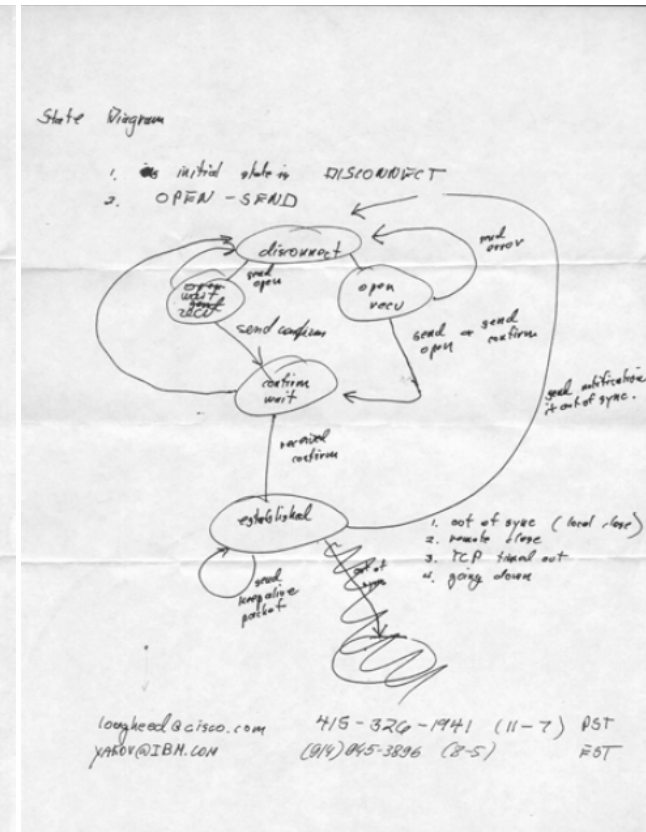 State Diagram
1. initial state is DISCONNECT
2. OPEN - SEND
disconnect
send
error
send
open
open
wait
recv
open
recv
send confirm
send or send
open confirm
confirm
wait
send notification
if out of sync.
received
confirm
established
1. out of sync (local close)
2. remote close
3. TCP timed out
4. going down
out of
sync
send
keepalive
packet
lougheed@cisco.com 415-326-1941 (11-7) PST
YAKOV@IBM.COM (914) 945-3896 (8-5) EST